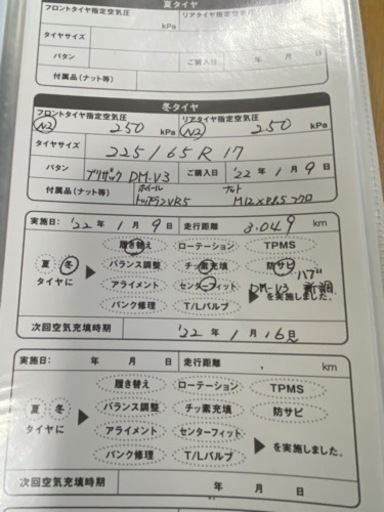 夏タイヤ
フロントタイヤ指定空気圧 リアタイヤ指定空気圧
kPa kPa
タイヤサイズ
パタン ご購入日 年 月 日
付属品(ナット等)
冬タイヤ
フロントタイヤ指定空気圧 リアタイヤ指定空気圧
N2 250 kPa N2 250 kPa
タイヤサイズ 225/65R17
パタン ブリザック DM-V3 ご購入日 '22年 1月 9日
付属品(ナット等) ホイール ナット
実施日: '22年 1月 9日 走行距離 3.049 km
履き替え ローテーション TPMS
夏 冬 バランス調整 チッ素充填 防サビ ハブ
タイヤに アライメント センターフィット DM-V3 新調 を実施しました。
パンク修理 T/Lバルブ
次回空気充填時期 '22年 1月 16日
実施日: 年 月 日 走行距離 km
履き替え ローテーション TPMS
夏 冬 バランス調整 チッ素充填 防サビ
タイヤに アライメント センターフィット を実施しました。
パンク修理 T/Lバルブ
次回空気充填時期 年 月 日